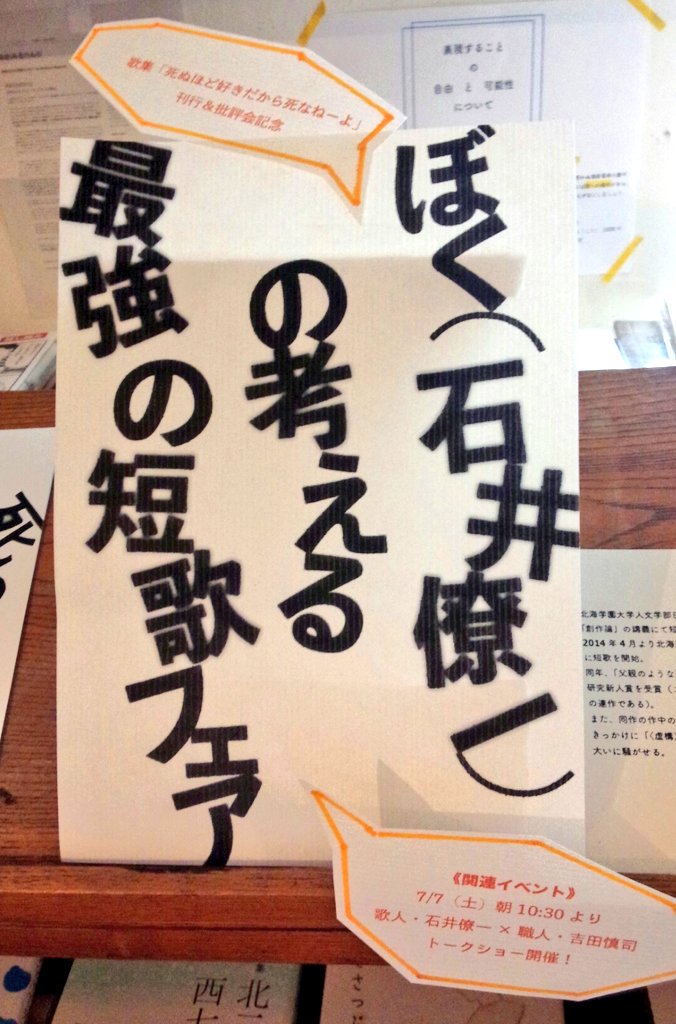 歌集「死ぬほど好きだから死なねーよ」
刊行&批評会記念
表現すること
の
自由 と 可能性
について
ぼく(石井僚一)
の考える
最強の短歌フェア
北海学園大学人文学部
「創作論」の講義にて短
2014年4月より北海
に短歌を開始。
同年、「父親のような
研究新人賞を受賞(
の連作である)。
また、同作の作中の
きっかけに「〈虚構
大いに騒がせる。
《関連イベント》
7/7(土)朝10:30より
歌人・石井僚一×職人・吉田慎司
トークショー開催!
北
西
さっ